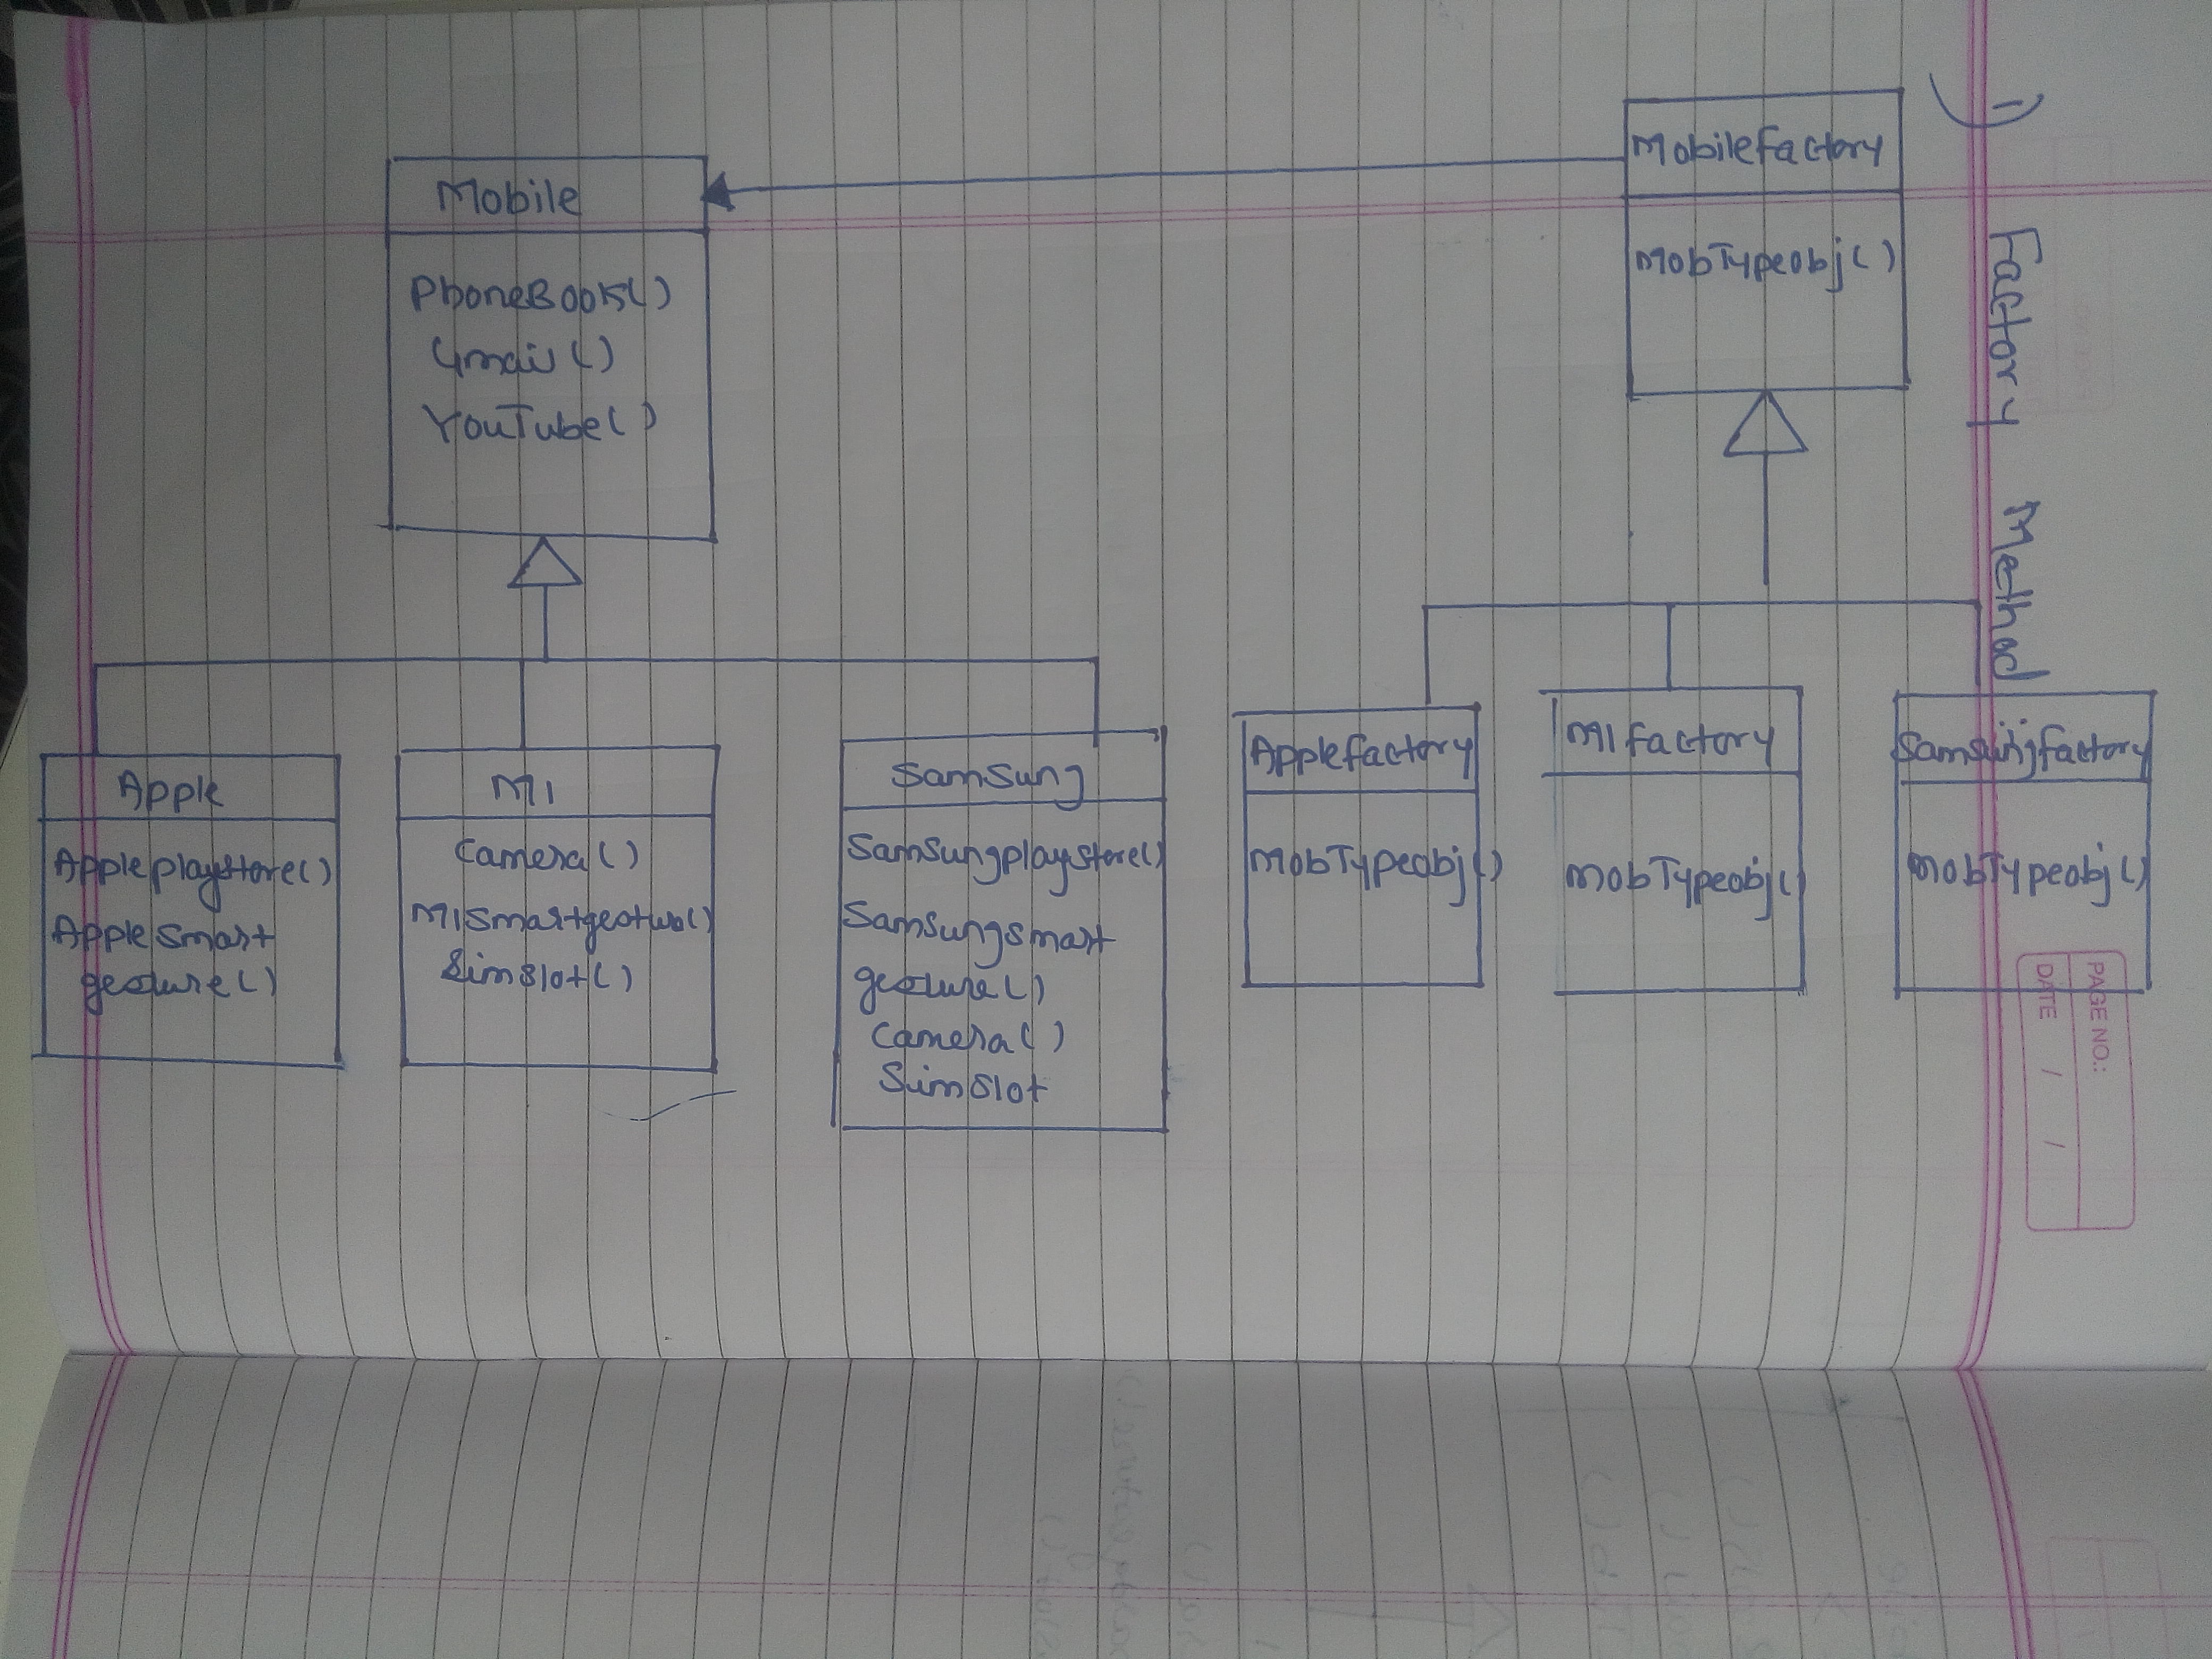 1)
Factory Method
Mobile
PhoneBook()
Gmail()
YouTube()
Mobilefactory
MobTypeobj()
Apple
Appleplaystore()
Applesmart
gesture()
M1
Camera()
Simslot()
Samsung
Samsungplaystore()
Samsungsmart
gesture()
Camera()
Simslot
Applefactory
MobTypeobj()
M1factory
MobTypeobj()
Samsungfactory
MobTypeobj()
PAGE NO.:
DATE / /